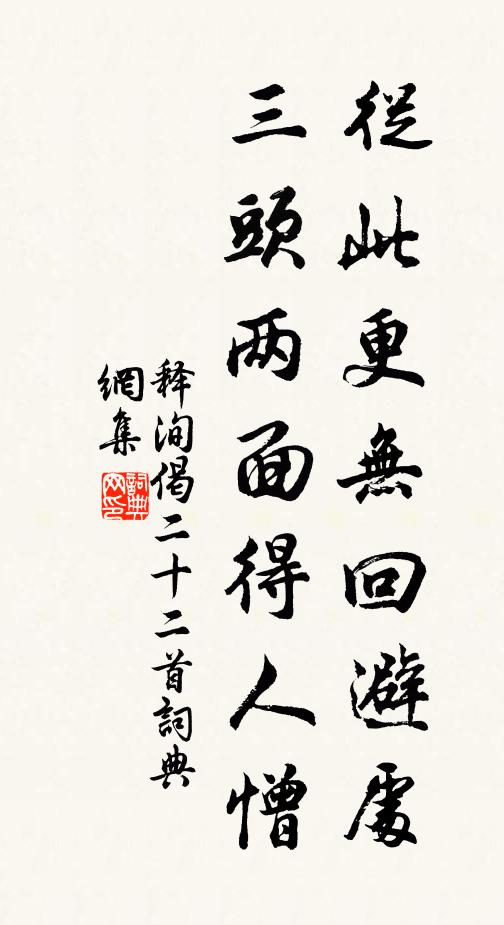 從此更無回避處
三頭两面得人憎
释洵偈二十二首詞典
網集
詞典网印